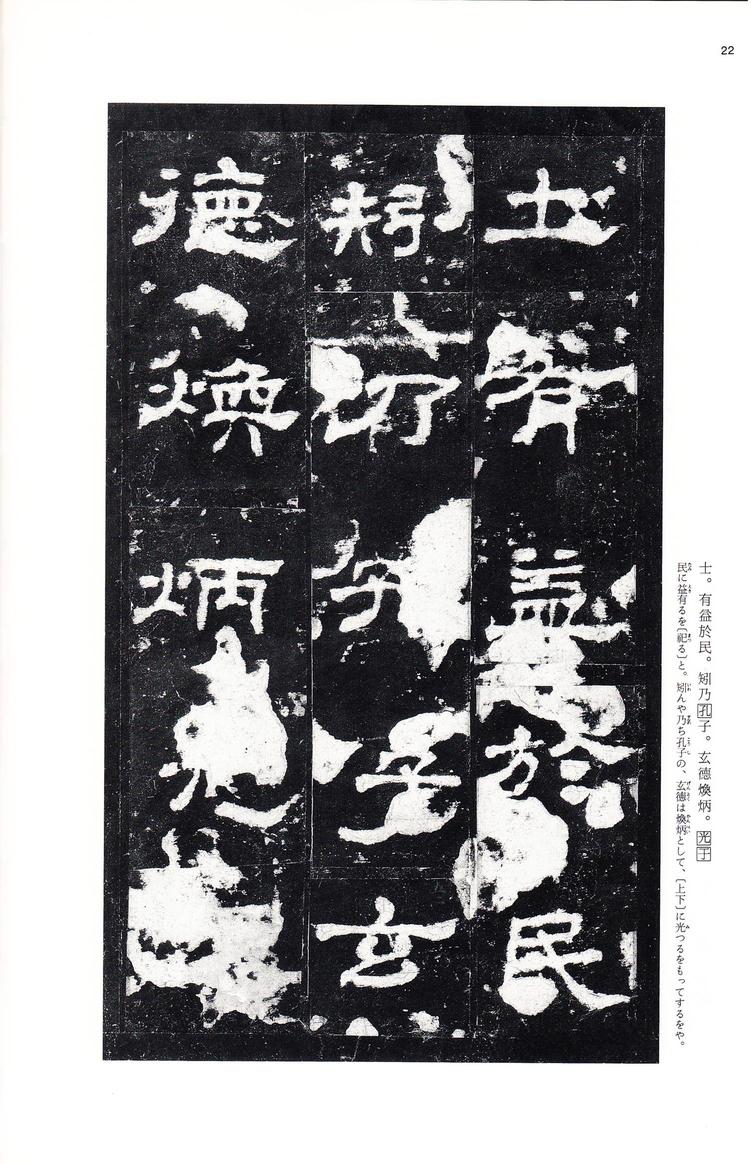 22
士。有益於民。矧乃孔子。玄德煥炳。光于
民に益有るを〔祀る〕と。矧んや乃ち孔子の、玄德は煥炳として、〔上下〕に光つるをもってするをや。
士有益於民
矧乃孔子玄
德煥炳光